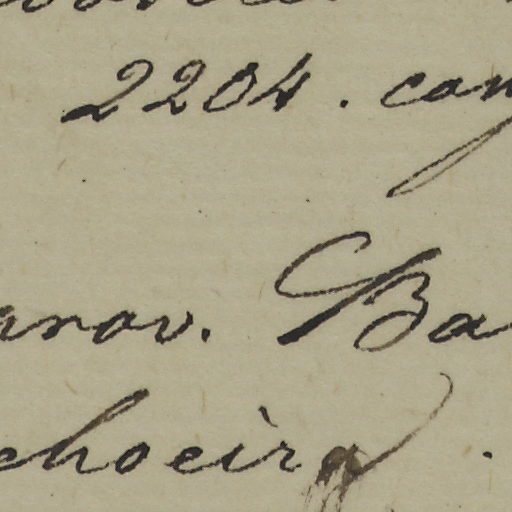 2204. cam
prov. Ba
choeira.